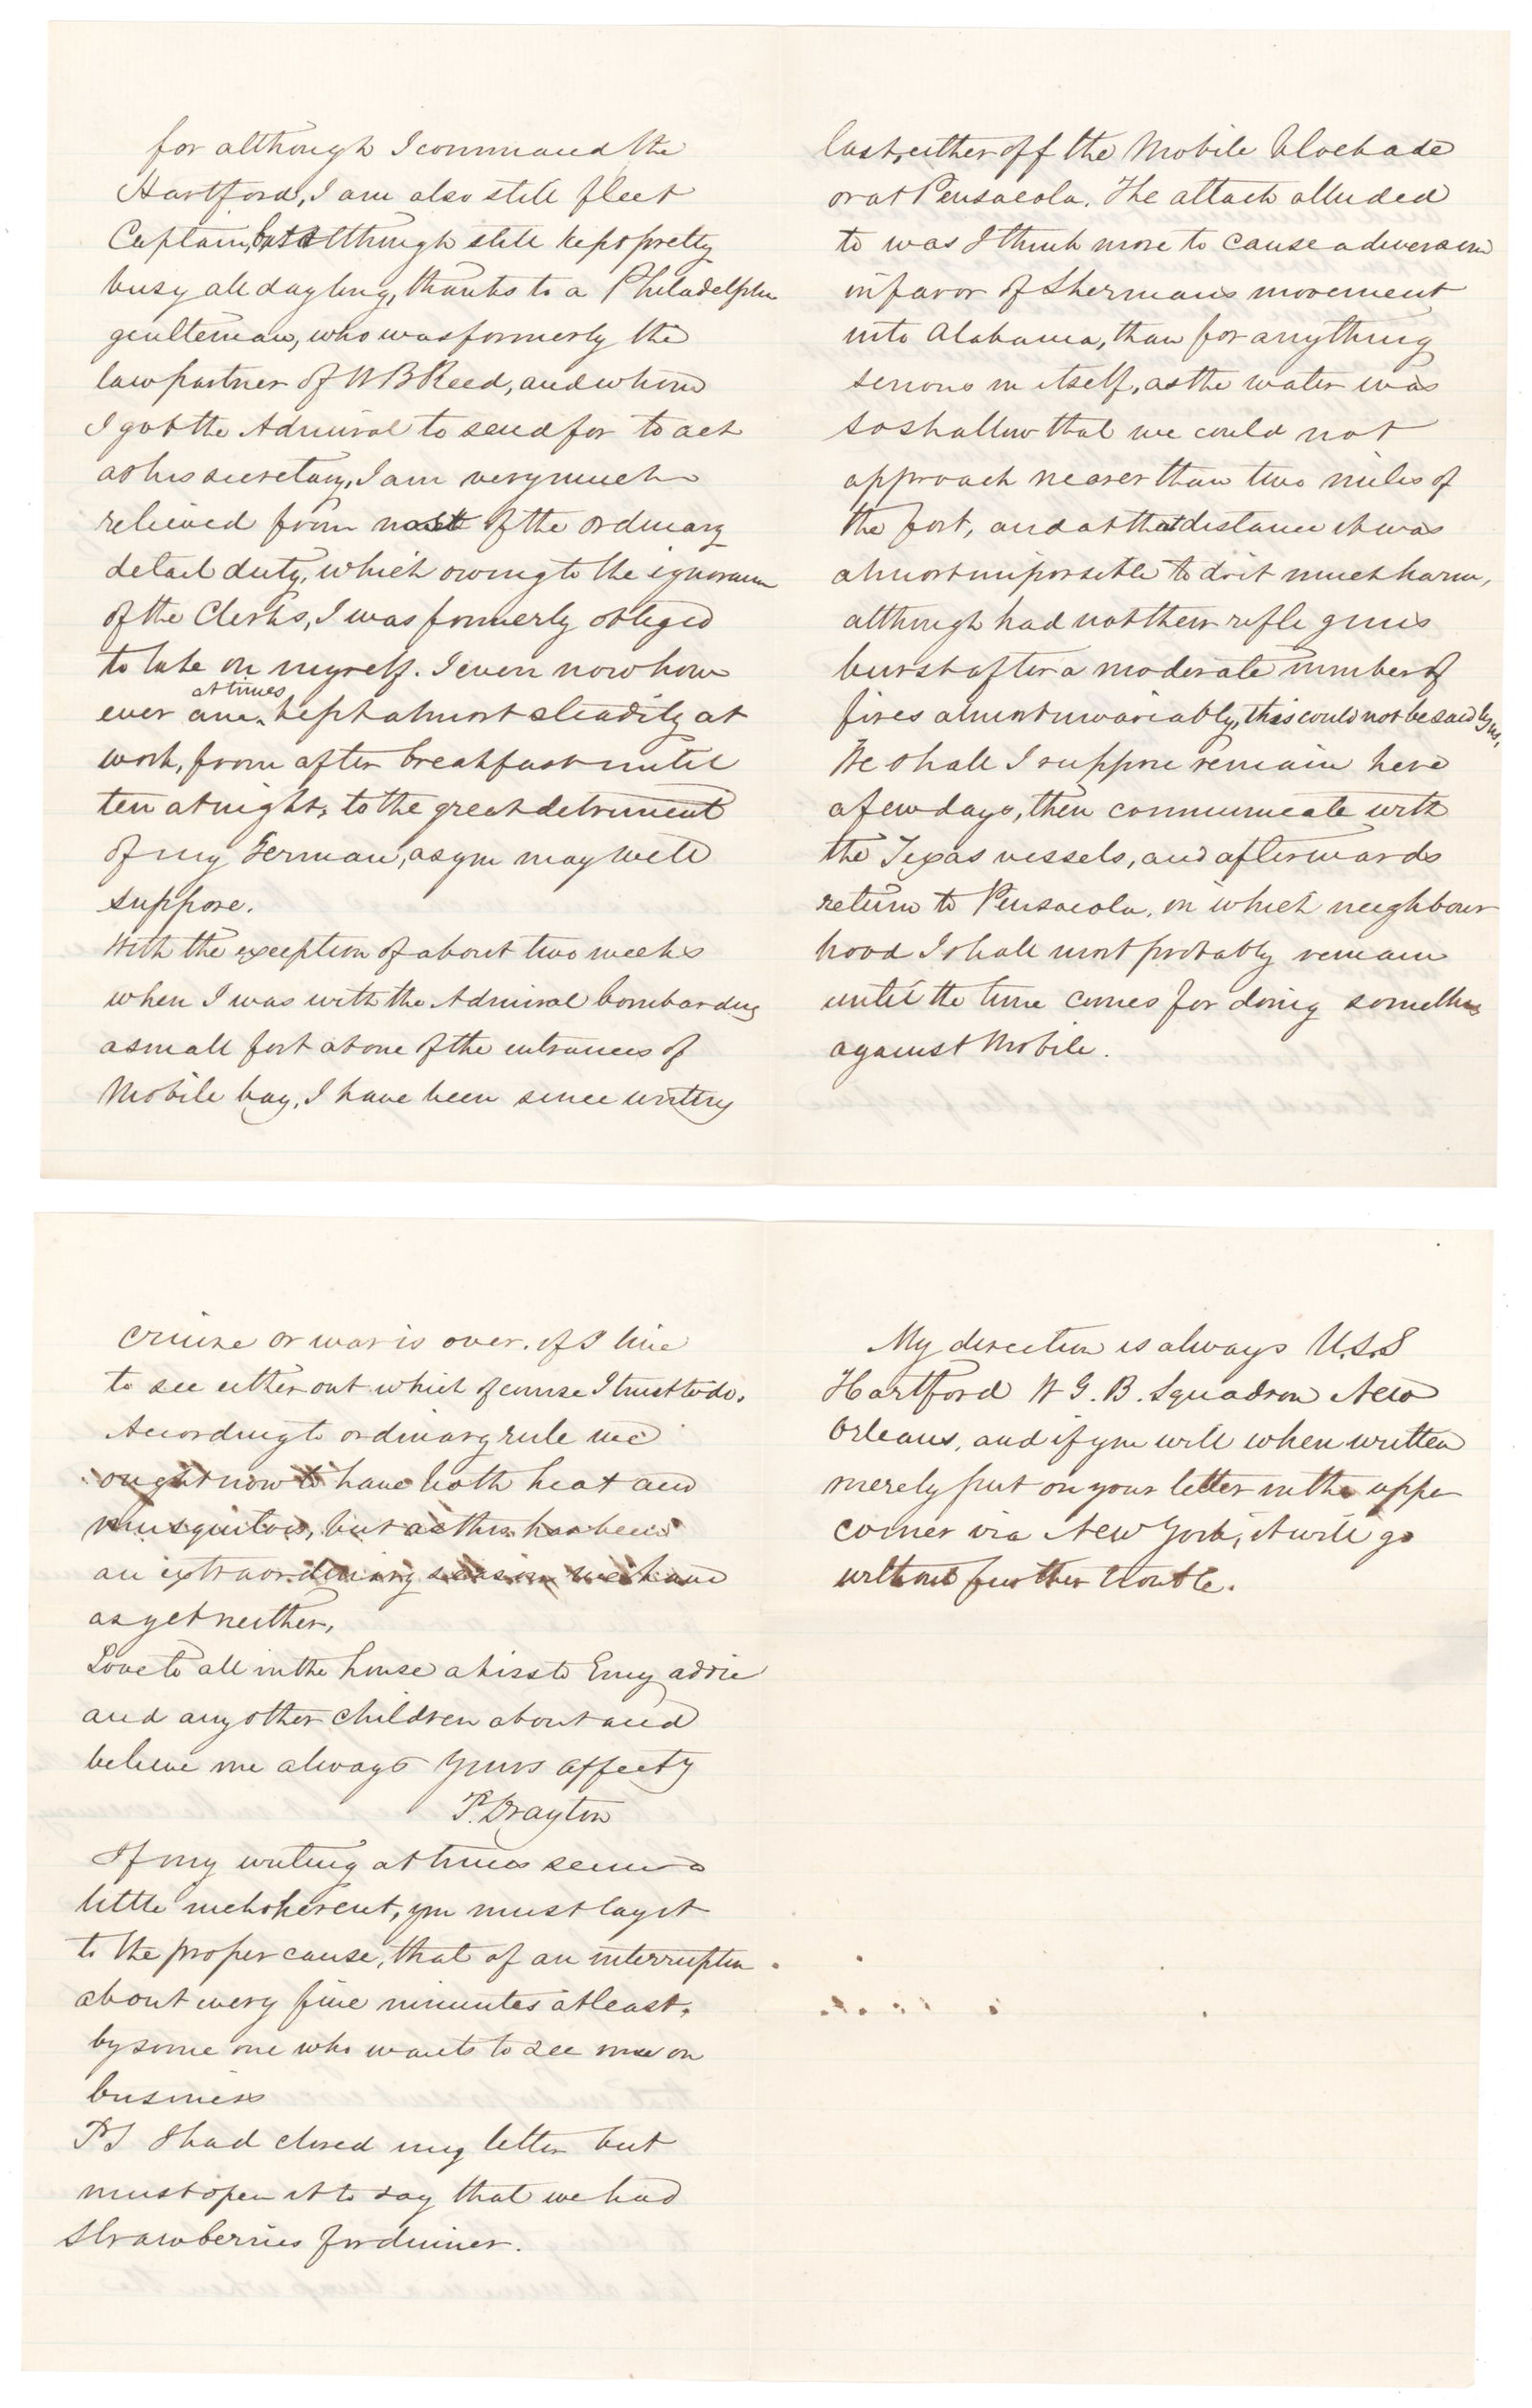 for although I command the
Hartford, I am also still fleet
Captain, but although still kept pretty
busy all day long, thanks to a Philadelphia
genlteman, who was formerly the
law partner of W B Reed, and whom
I got the Admiral to send for to act
as his secretary, I am very much
relieved from most of the ordinary
detail duty, which owing to the ignorance
of the Clerks, I was formerly obliged
to take on myself. I even now how
ever am at times kept almost steadily at
work, from after breakfast until
ten at night, to the great detriment
of my German, as you may well
suppose.
With the exception of about two weeks
when I was with the Admiral bombarding
a small fort at one of the entrances of
Mobile bay, I have been since writing
last, either off the Mobile blockade
or at Pensacola. The attack alluded
to was I think more to cause a diversion
in favor of Shermans movement
into Alabama, than for anything
serious in itself, as the water was
so shallow that we could not
approach nearer than two miles of
the fort, and at that distance it was
almost impossible to do it much harm,
although had not their rifle guns
burst after a moderate number of
fires almost invariably, this could not be said by us,
We shall I suppose remain here
a few days, then communicate with
the Texas vessels, and afterwards
return to Pensacola, in which neighbour
hood I shall most probably remain
until the time comes for doing something
against Mobile.
cruise or war is over. if I live
to see either out which of course I trust to do.
According to ordinary rule we
ought now to have both heat and
musquitos, but as this has been
an extraordinary season we have
as yet neither,
Love to all in the house a kiss to Emy addie
and any other children about and
believe me always yours affecty
P. Drayton
If my writing at times seems a
little inchoherent, you must lay it
to the proper cause, that of an interruption
about every five minutes at least,
by some one who wants to see me on
business
PS I had closed my letter but
must open it to say that we had
strawberries for dinner.
My direction is always U.S.S
Hartford W G. B. Squadron New
Orleans, and if you will when written
merely put on your letter in the upper
corner via New York, it will go
without further trouble.